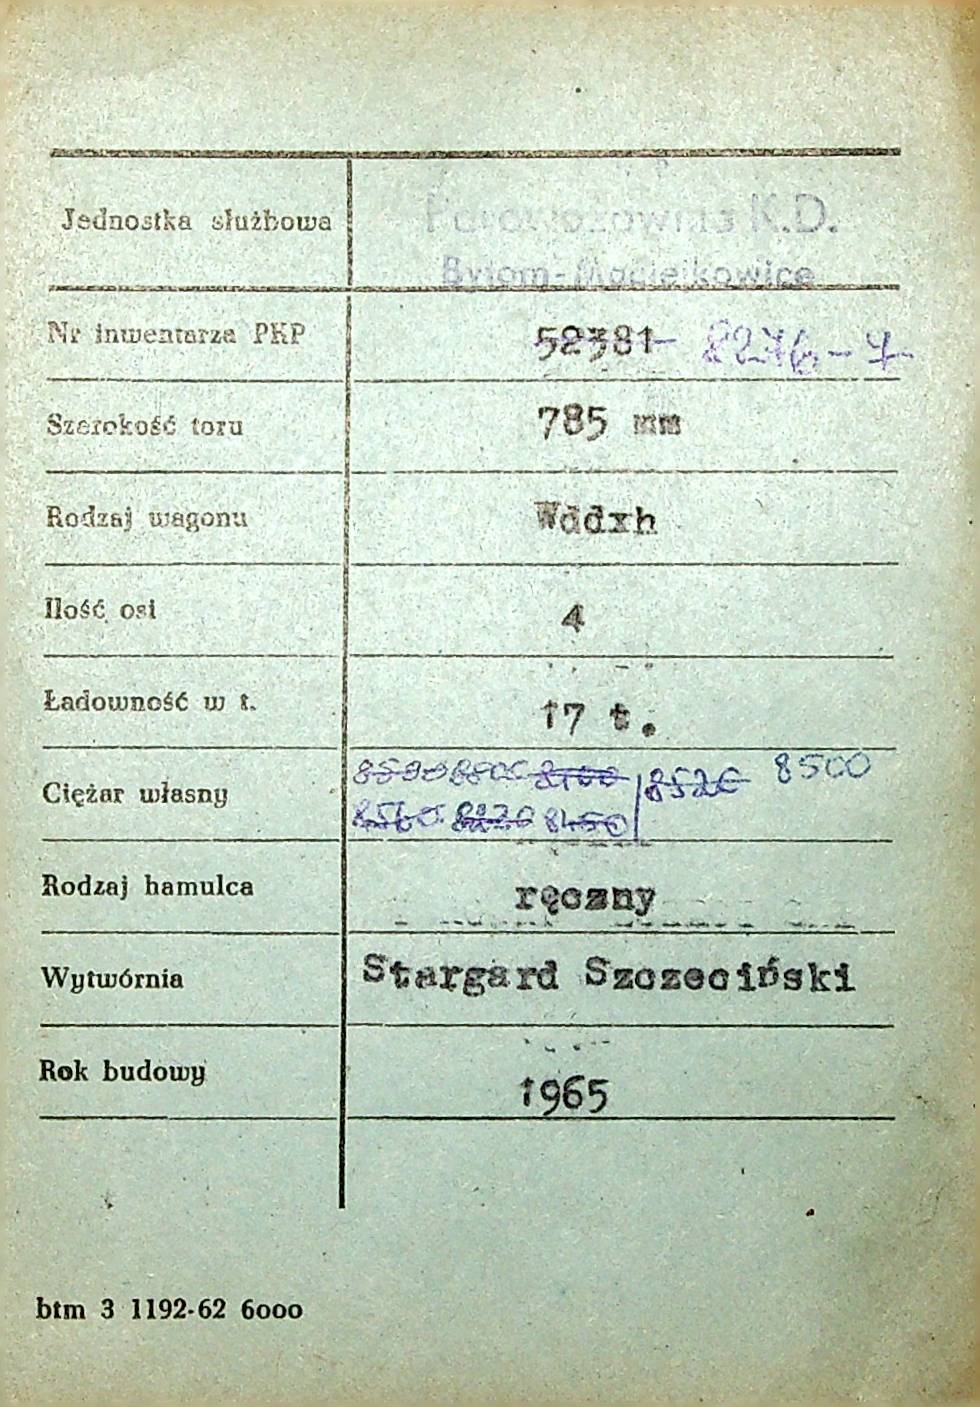 Jednostka służbowa Parowozownia K.D.
Bytom-Maciejkowice
Nr inwentarza PKP 52381 8276-7
Szerokość toru 785 mm
Rodzaj wagonu Wddxh
Ilość osi 4
Ładowność w t. 17 t.
Ciężar własny 8520 8500
8450
Rodzaj hamulca ręczny
Wytwórnia Stargard Szczeciński
Rok budowy 1965
btm 3 1192-62 6000